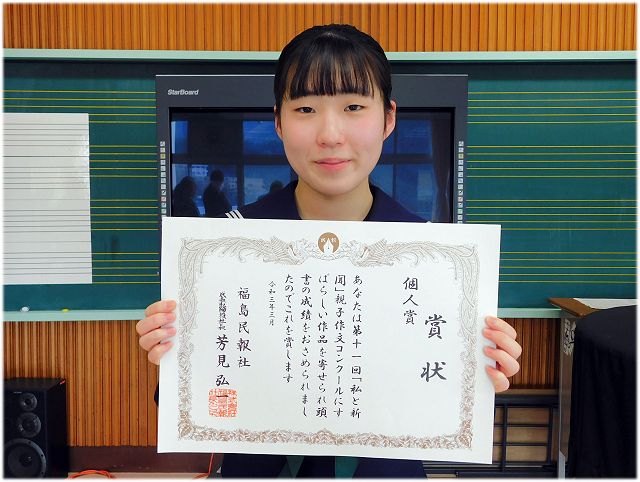 StarBoard
賞状
個人賞
あなたは第十一回「私と新
聞」親子作文コンクールにす
ばらしい作品を寄せられ頭
書の成績をおさめられまし
たのでこれを賞します
令和三年三月
福島民報社
芳見弘一